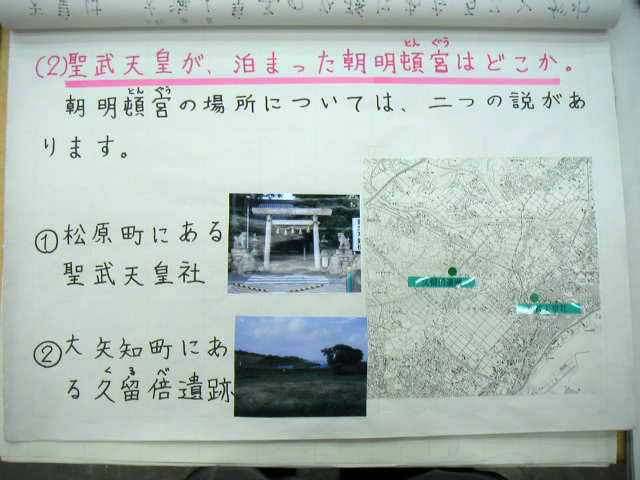 (2)聖武天皇が、泊まった朝明頓宮はどこか。
とん ぐう
朝明頓宮の場所については、二つの説があ
とん ぐう
ります。
①松原町にある
聖武天皇社
②大矢知町にあ
る久留倍遺跡
くるべ